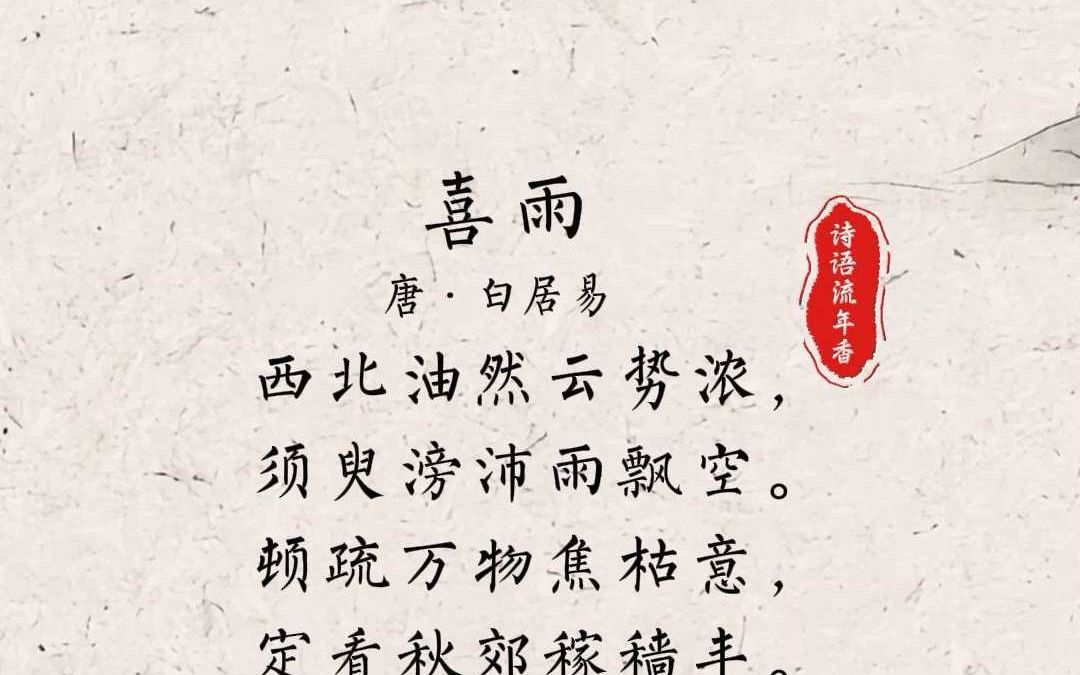 喜雨
唐·白居易
西北油然云势浓，
须臾滂沛雨飘空。
顿疏万物焦枯意，
定看秋郊稼穑丰。
诗语流年香